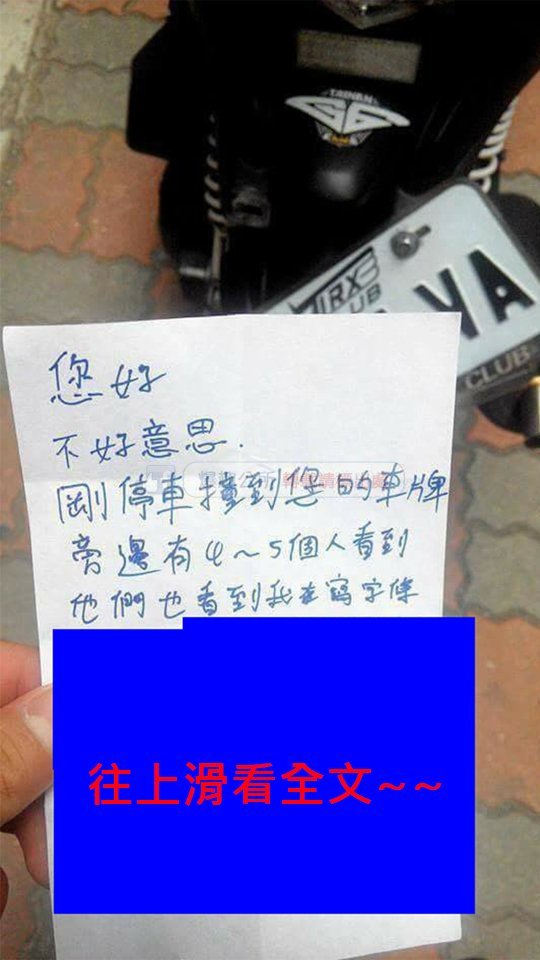 TAINAN
G6
CLUB
VA
CLUB
您好
不好意思.
剛停車撞到您的車牌
旁邊有4~5個人看到
他們也看到我在寫字條
往上滑看全文~~